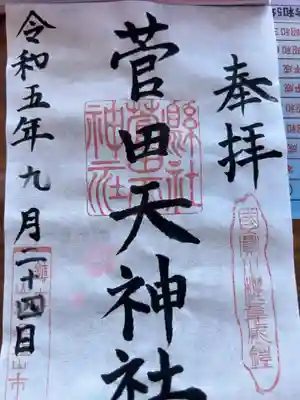 奉拝
国宝 楯無鎧
菅田天神社
縣社菅田神社
令和五年九月二十四日